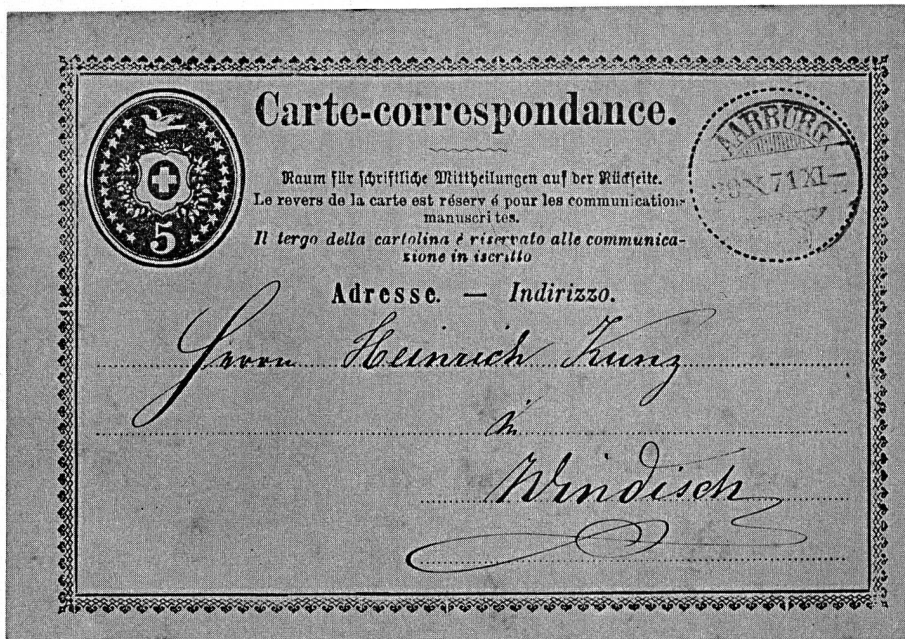 Carte-correspondance.
Raum für schriftliche Mittheilungen auf der Rückseite.
Le revers de la carte est réserv é pour les communication-
manuscri tes.
Il tergo della cartolina è riservato alle communica-
zione in iscritto
Adresse. — Indirizzo.
5
AARBURG
20 X 71 XI—
Herrn Heinrich Kunz
in
Windisch